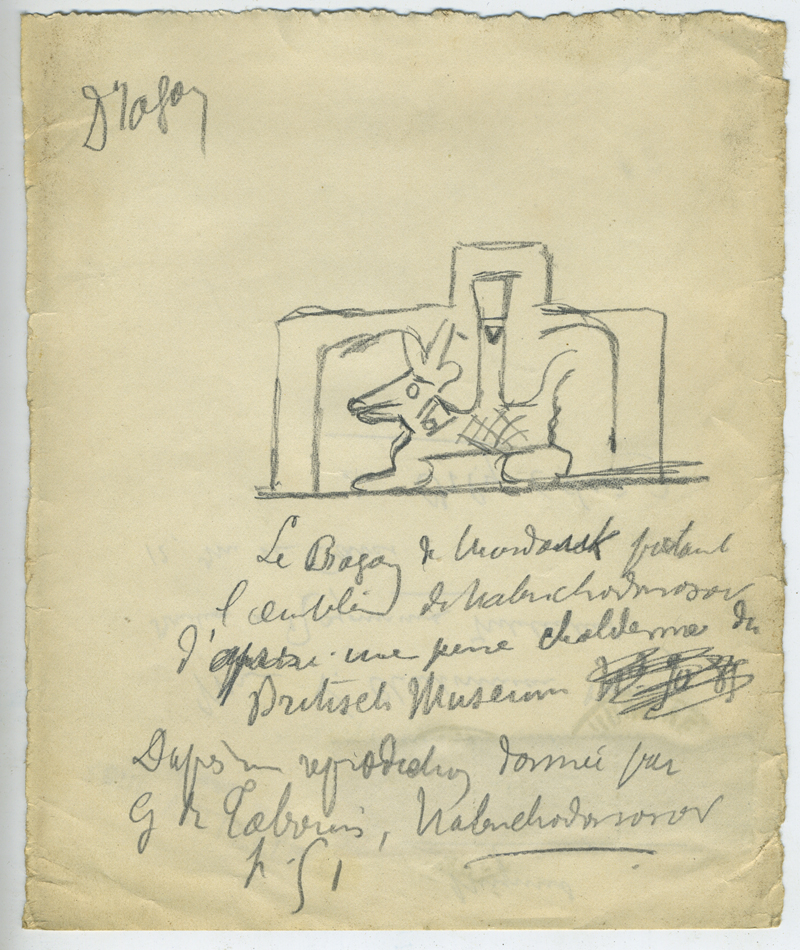 Dragon
Le Dragon de Mardouk portant
l'emblème de Nabuchodonosor
d'après une pierre chaldéenne du
British Museum
D'après une reproduction donnée par
G de Tabouis, Nabuchodonosor
p. 51